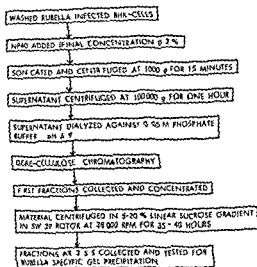 WASHED RUBELLA INFECTED BHK-CELLS
NP40 ADDED (FINAL CONCENTRATION 0.2%
SONICATED AND CENTRIFUGED AT 5000 g FOR 15 MINUTES
SUPERNATANT CENTRIFUGED AT 100000 g FOR ONE HOUR
SUPERNATANT DIALYZED AGAINST 0.05M PHOSPHATE
BUFFER pH
DEAE-CELLULOSE CHROMATOGRAPHY
FIRST FRACTIONS COLLECTED AND CONCENTRATED
MATERIAL CENTRIFUGED IN 5-20 % LINEAR SUCROSE GRADIENT
IN SW RPM FOR 35 - 40 HOURS
FRACTIONS AT S COLLECTED AND TESTED FOR
RUBELLA SPECIFIC GEL PRECIPITATION